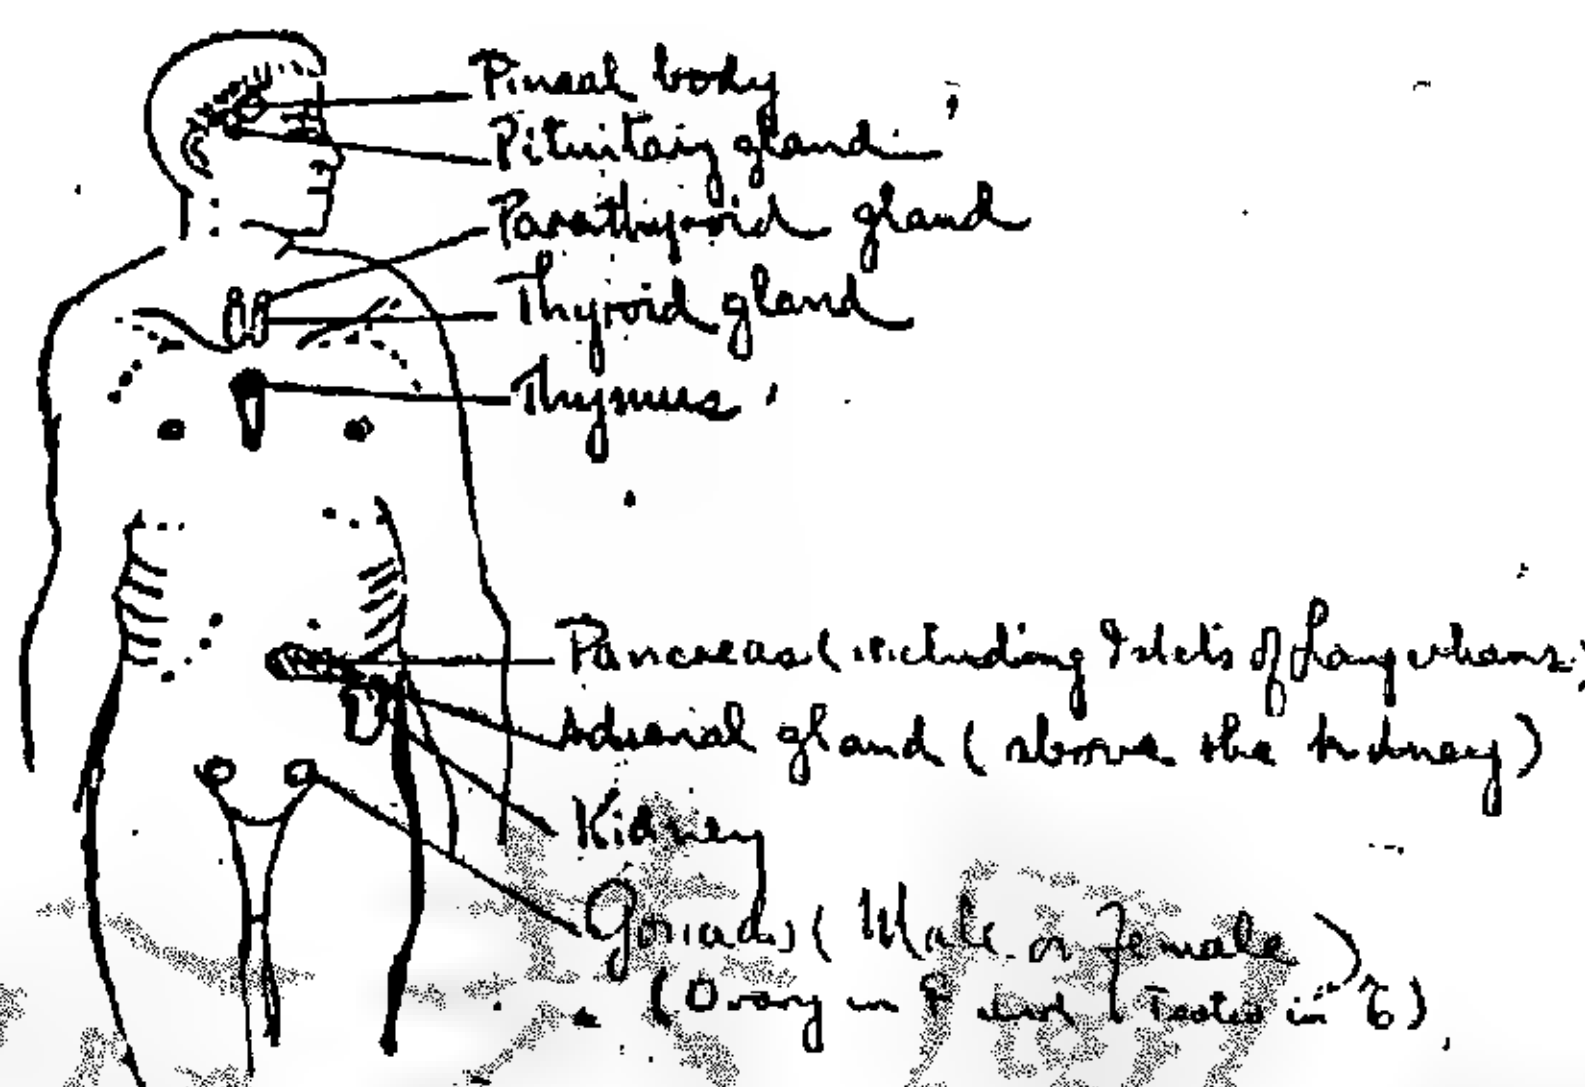 Pineal body
Pituitary gland
Parathyroid gland
Thyroid gland
Thymus
Pancreas (including Islets of Langerhans)
Adrenal gland (above the kidney)
Kidney
Gonads (Male or Female)
(Ovary in ♀ and Testes in ♂)